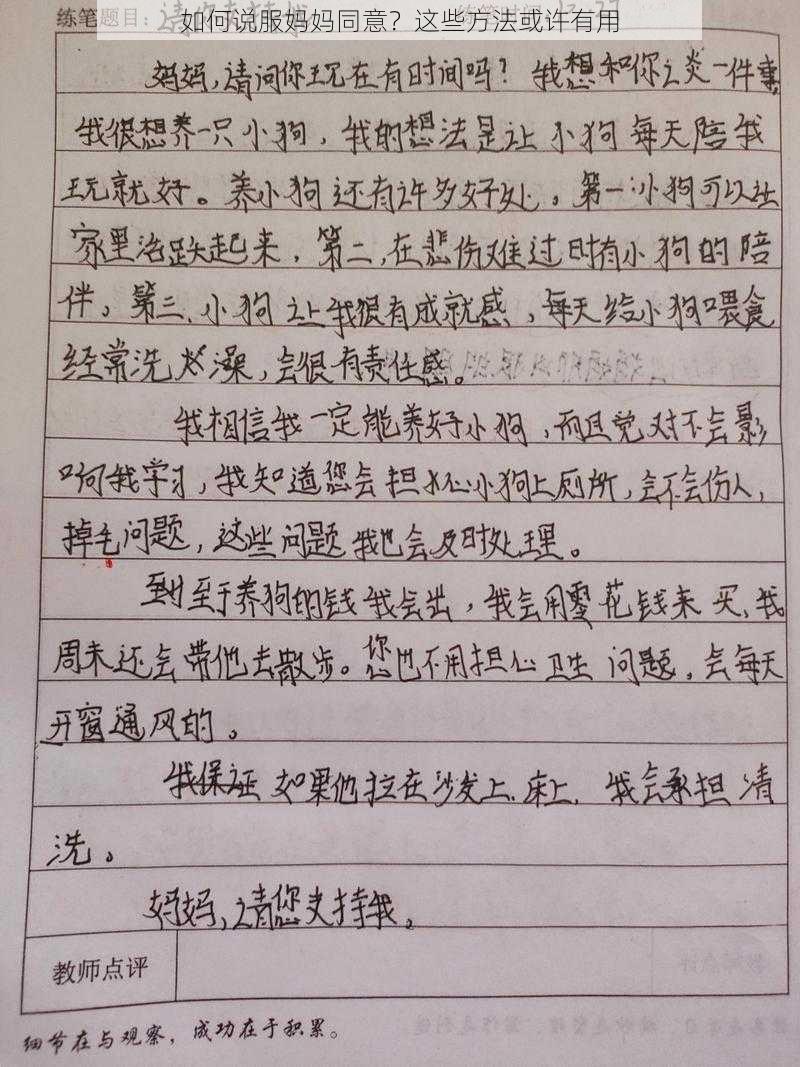 如何说服妈妈同意？这些方法或许有用
练笔题目：
妈妈，请问你现在有时间吗？我想和你谈一件事，
我很想养一只小狗，我的想法是让小狗每天陪我
玩就好。养小狗还有许多好处，第一：小狗可以让
家里活跃起来，第二，在悲伤难过时有小狗的陪
伴。第三，小狗让我很有成就感，每天给小狗喂食
经常洗澡，会很有责任感。
我相信我一定能养好小狗，而且绝对不会影
响我学习，我知道您会担心小狗上厕所，会不会伤人，
掉毛问题，这些问题我也会及时处理。
至于养狗的钱我会出，我会用零花钱来买，我
周末还会带他去散步。您也不用担心卫生问题，会每天
开窗通风的。
我保证如果他拉在沙发上.床上，我会承担清
洗。
妈妈，请您支持我。
教师点评
细节在与观察，成功在于积累。